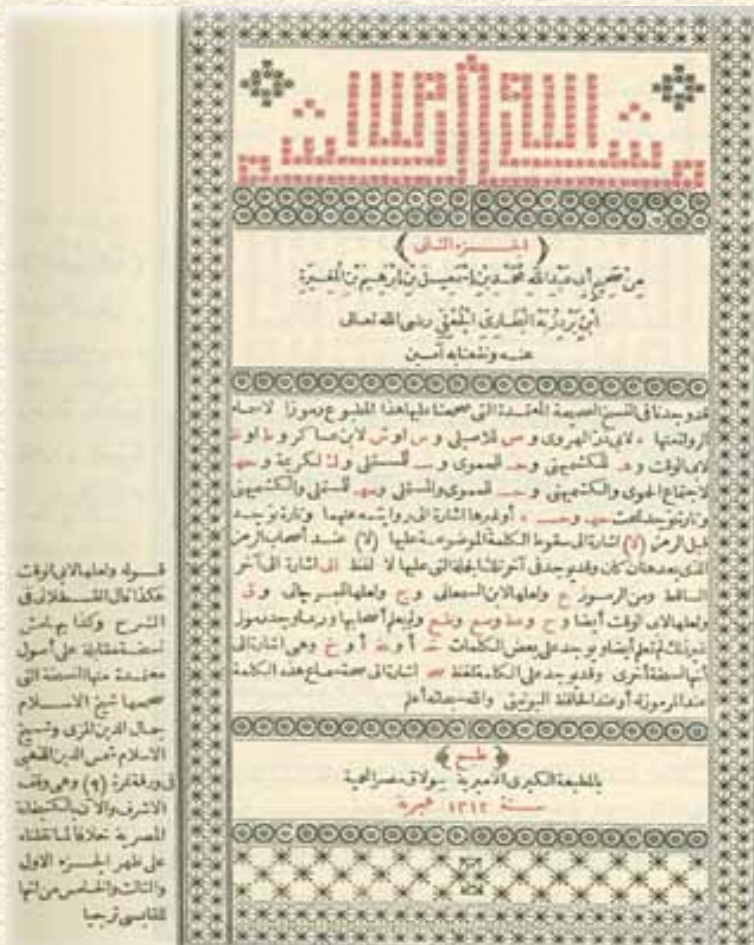 بسم الله الرحمن الرحيم
(الجزء الثاني)
من صحيح أبي عبد الله محمد بن اسمعيل بن ابرهيم بن المغيرة
ابن بردزبه البخاري الجعفي رضي الله تعالى
عنه ونفعنا به آمين
قد وجدنا في النسخ الصحيحة المعتمدة التي صححنا عليها هذا المطبوع رموزا لاسماء
الرواة منها ه لابي ذر الهروي و ص للاصيلي و س او ش لابن عساكر و ط او ظ
لابي الوقت و هـ للكشميهني و حـ للحموي و ســ للمستملي و ك لكريمة و حهـ
لاجتماع الحموي والكشميهني و حســ للحموي والمستملي و سهـ للمستملي والكشميهني
وتارة توجد تحت حهـ و حســ ه أو غيرها اشارة الى روايته عنهما وتارة توجد
قبل الرمز (لا) اشارة الى سقوط الكلمة الموضوعة عليها (لا) عند أصحاب الرمز
الذي بعدها ان كان وقد يوجد في آخر تلك الجملة التي عليها لا لفظ الى اشارة الى آخر
الساقط ومن الرموز ع ولعلها لابن السمعاني و ج ولعلها للجرجاني و ق
ولعلها لابي الوقت أيضا و ح و عط و صع و ظع ولم يعلم أصحابها وربما وجد رموز
غير تلك لم تعلم أيضا ويوجد على بعض الكلمات خـ أو خ وهي اشارة الى
أنها نسخة أخرى وقد يوجد على الكلمة لفظ صح اشارة الى صحة سماع هذه الكلمة
عند المرموز له أو عند الحافظ اليونيني والله سبحانه أعلم
(طبع)
بالمطبعة الكبرى الاميرية ببولاق مصر المحمية
سنة ١٣١٢ هجرية
قوله ولعلها لابي الوقت
هكذا قال القسطلاني في
الشرح وكذا بهامش
نسخة مقابلة على أصول
معتمدة منها النسخة التي
صححها شيخ الاسلام
جمال الدين المزي وشيخ
الاسلام شمس الدين الذهبي
في ورقة نمرة (٩) وهي وقف
الاشرف والآن بالكتبخانة
المصرية خلافا لما نقلناه
على ظهر الجزء الاول
والثالث والخامس من انها
للقابسي ترجيا